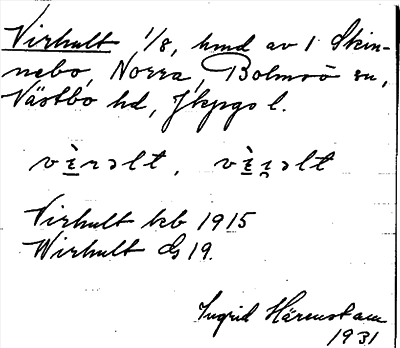 Virhult 1/8, hmd av 1 Skin-
nebo, Norra, Bolmsö sn,
Västbo hd, Jkpgs l.
vɪ̀rəlt, vɪ̀r̥əlt
Virhult kb 1915
Wirhult GS 19.
Ingrid Härenstam
1931